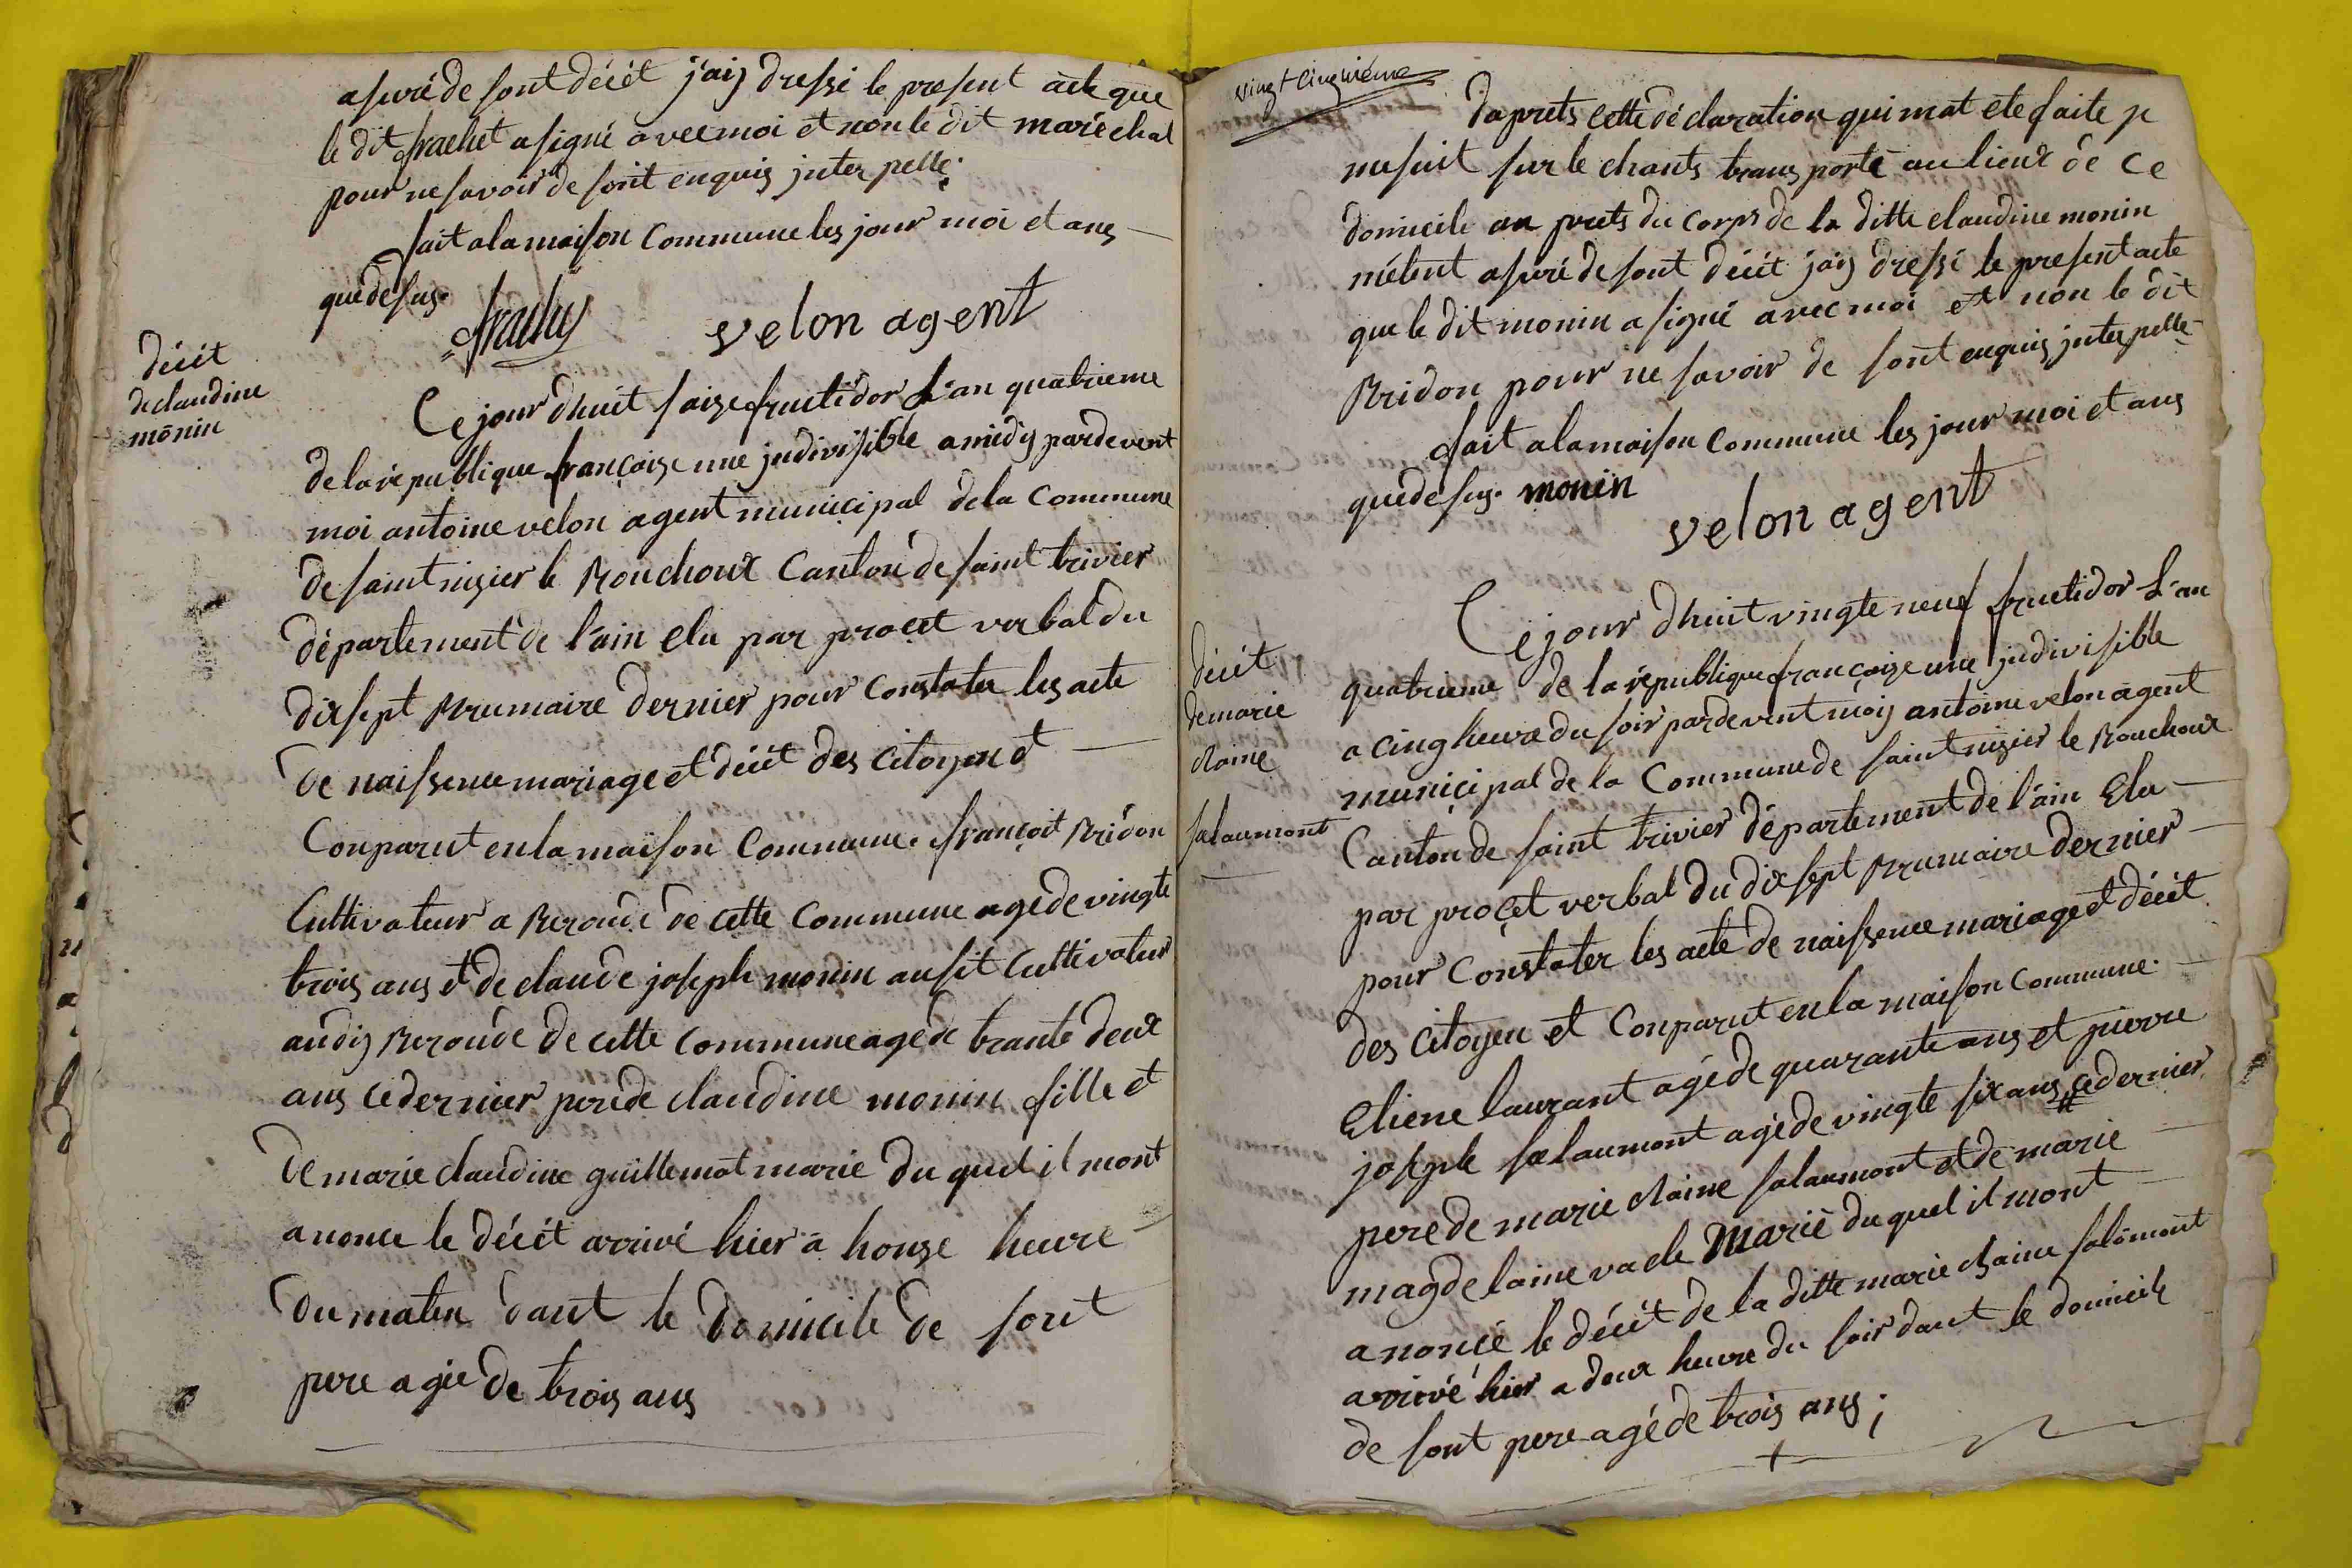 asuré de sont décét j'aij dressé le present acte que
le dit frachet a signé avec moi et non le dit maréchal
pour ne savoir de sont enquis interpellé.
fait a la maison Commune les jour moi et ans
que desus.
velon agent
décét
de claudine
monin
Ce jour dhuit saize fructidor L'an quatrieme
de la république françaize une jndivisible a midij pardevent
moi antoine velon agent municipal de la Commune
de saint nizier le Bouchoux Canton de saint trivier
département de l'ain elu par procet verbal du
dix sept Brumaire dernier pour Constater les acte
de naissence mariage et décét des Citoyen et
Conparut en la maison Commune. françoit Bridon
Cultivateur a Beroude de cette Commune agé de vingte
trois ans et de claude joseph monin ausit Cultivateur
audij Beroude de cette Commune agé de trante deux
ans ce dernier pere de claudine monin fille et
de marie claudine guillemot marie du quel il mont
anonce le décét arrivé hier a honze heure
du matin dant le domicile de sont
pere agée de trois ans
vingt cinquiéme
Daprets cette déclaration qui mat ete faite je
me suit sur le chants transporté au lieux de ce
domicile au prets du corps de la ditte claudine monin
métent asuré de sont décét j'aij dressé le present acte
que le dit monin a signé avec moi et non le dit
Bridon pour ne savoir de sont enquis jnterpellé
fait a la maison Commune les jour moi et ans
que desus. monin
velon agent
décét
de marie
claine
salaumont
Ce jour dhuit vingte neuf fructidor L'an
quatrieme de la république françaize une jndivisible
a cinq heure du soir pardevent moij antoine velon agent
municipal de la Commune de saint nizier le Bouchoux
Canton de saint trivier département de l'ain Elu
par procet verbal du dix sept Brumaire dernier
pour Constater les acte de naissence mariage et décét
des Citoyen et Conparut en la maison Commune.
Etiene laurant agé de quarante ans et pierre
joseph salaumont agé de vingte six ans ce dernier
pere de marie claine salaumont et de marie
magdelaine vach Marié du quel il mont
anoncé le décét de la ditte marie claine salômont
arrivé hier a deux heure du soir dant le domicile
de sont pere agé de trois ans;